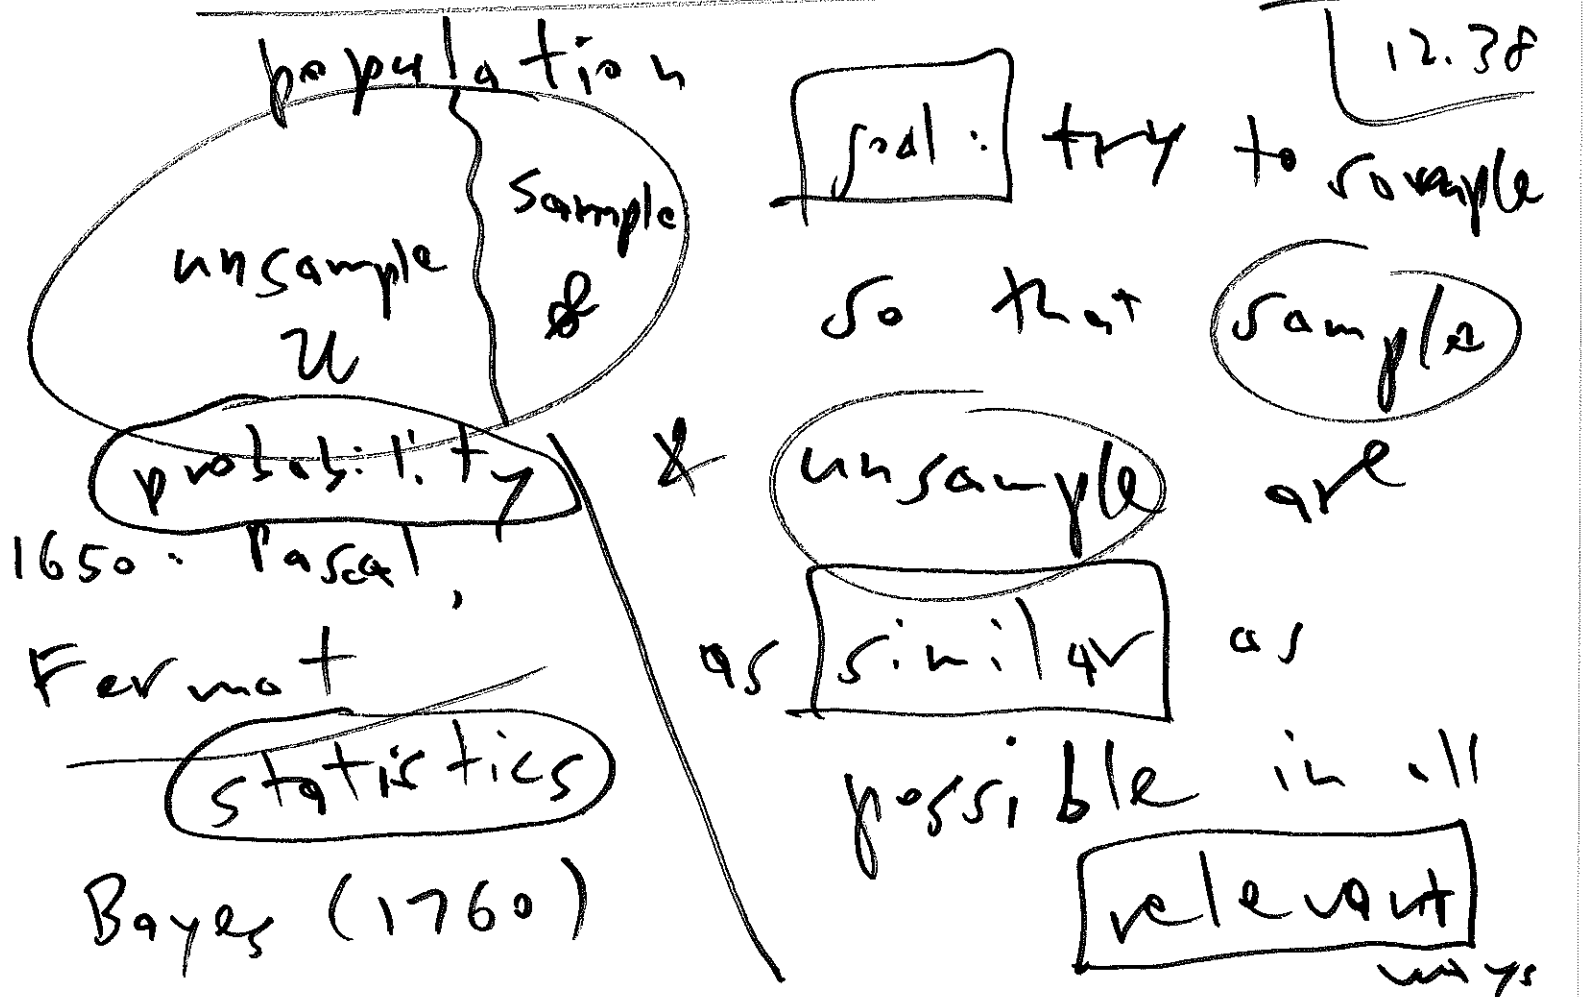 12.38
population
unsample
U
sample
probability
1650: Pascal,
Fermat
statistics
Bayes (1760)
goal: try to sample
so that sample
& unsample are
as similar as
possible in all
relevant
ways